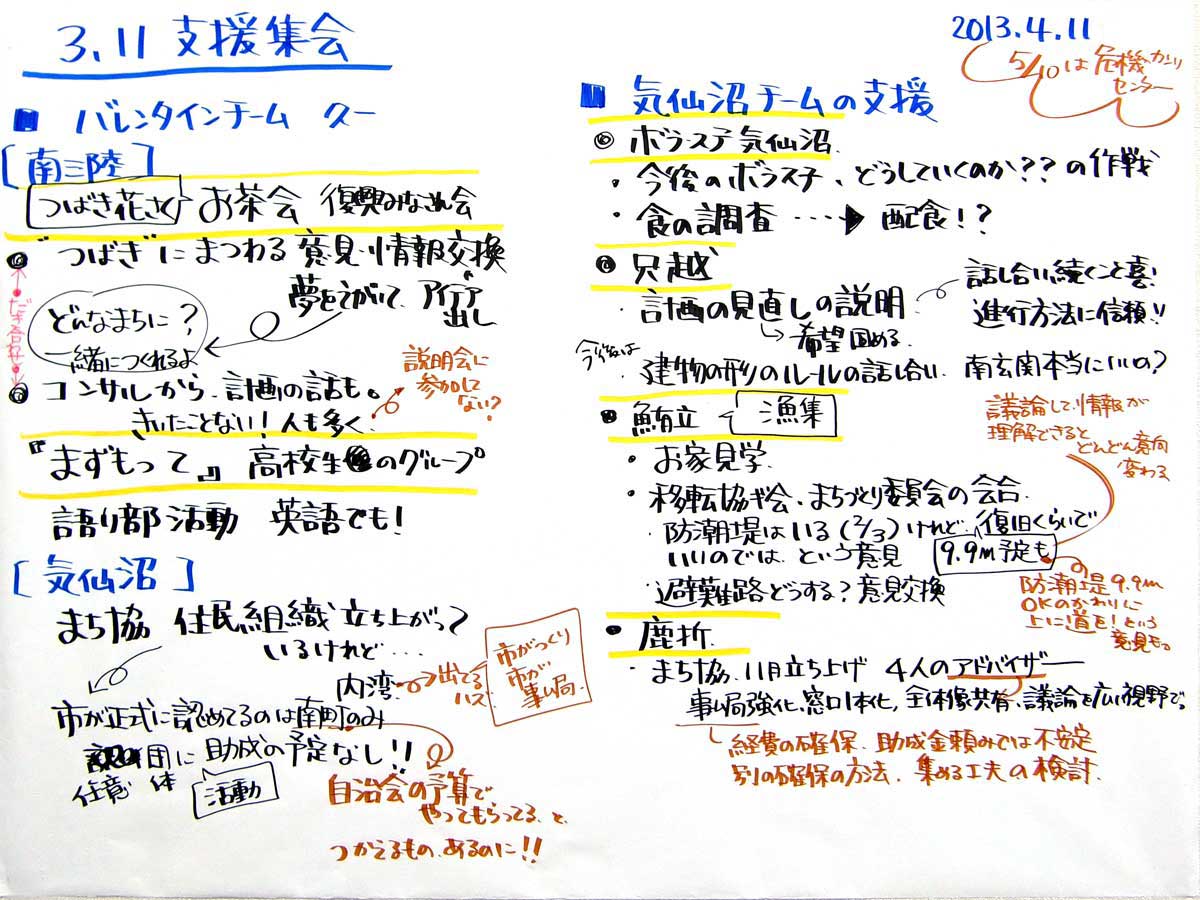 3.11 支援集会
2013.4.11
5/10は危機カンリ
センター
■ バレンタインチーム ター
[南三陸]
つばき花さく お茶会 復興みなされ会
"つばき"にまつわる意見・情報交換
夢をえがいて、アイデア
出し
どんなまちに？
一緒につくれるよ
だき合わせ
コンサルから、計画の話も。
きいたことない！人も多く、
説明会に
参加して
ない？
『まずもって』 高校生のグループ
語り部活動 英語でも！
[気仙沼]
まち協 住民組織立ち上がって
いるけれど…
内湾 → 出てる
ハズ
市がつくり
市が
事ム局
市が正式に認めてるのは南町のみ
任意団体に助成の予定なし!!
活動
自治会の予算で
やってもらってる、と、
つかえるもの、あるのに!!
■ 気仙沼チームの支援
ボラステ気仙沼
・今後のボラステ、どうしていくのか??の作戦
・食の調査 ····▶ 配食!?
只越
・計画の見直しの説明
話し合い続くこと喜！
進行方法に信頼!!
↳希望固める。
今後は
・建物の形のルールの話し合い 南玄関本当にいいの？
鮪立 漁集
・お家見学
・移転協ギ会、まちづくり委員会の会合
・防潮堤はいる(2/3)けれど、復旧くらいで
いいのでは、という意見 9.9m予定も
議論して、情報が
理解できると
どんどん意向
変わる
・避難路どうする？意見交換
防潮堤9.9m
OKのかわりに
上に道を！という
意見も。
・鹿折
・まち協、11月立ち上げ 4人のアドバイザー
事ム局強化、窓口1本化、全体像共有、議論を広い視野で。
経費の確保、助成金頼みでは不安定
別の確保の方法、集める工夫の検討